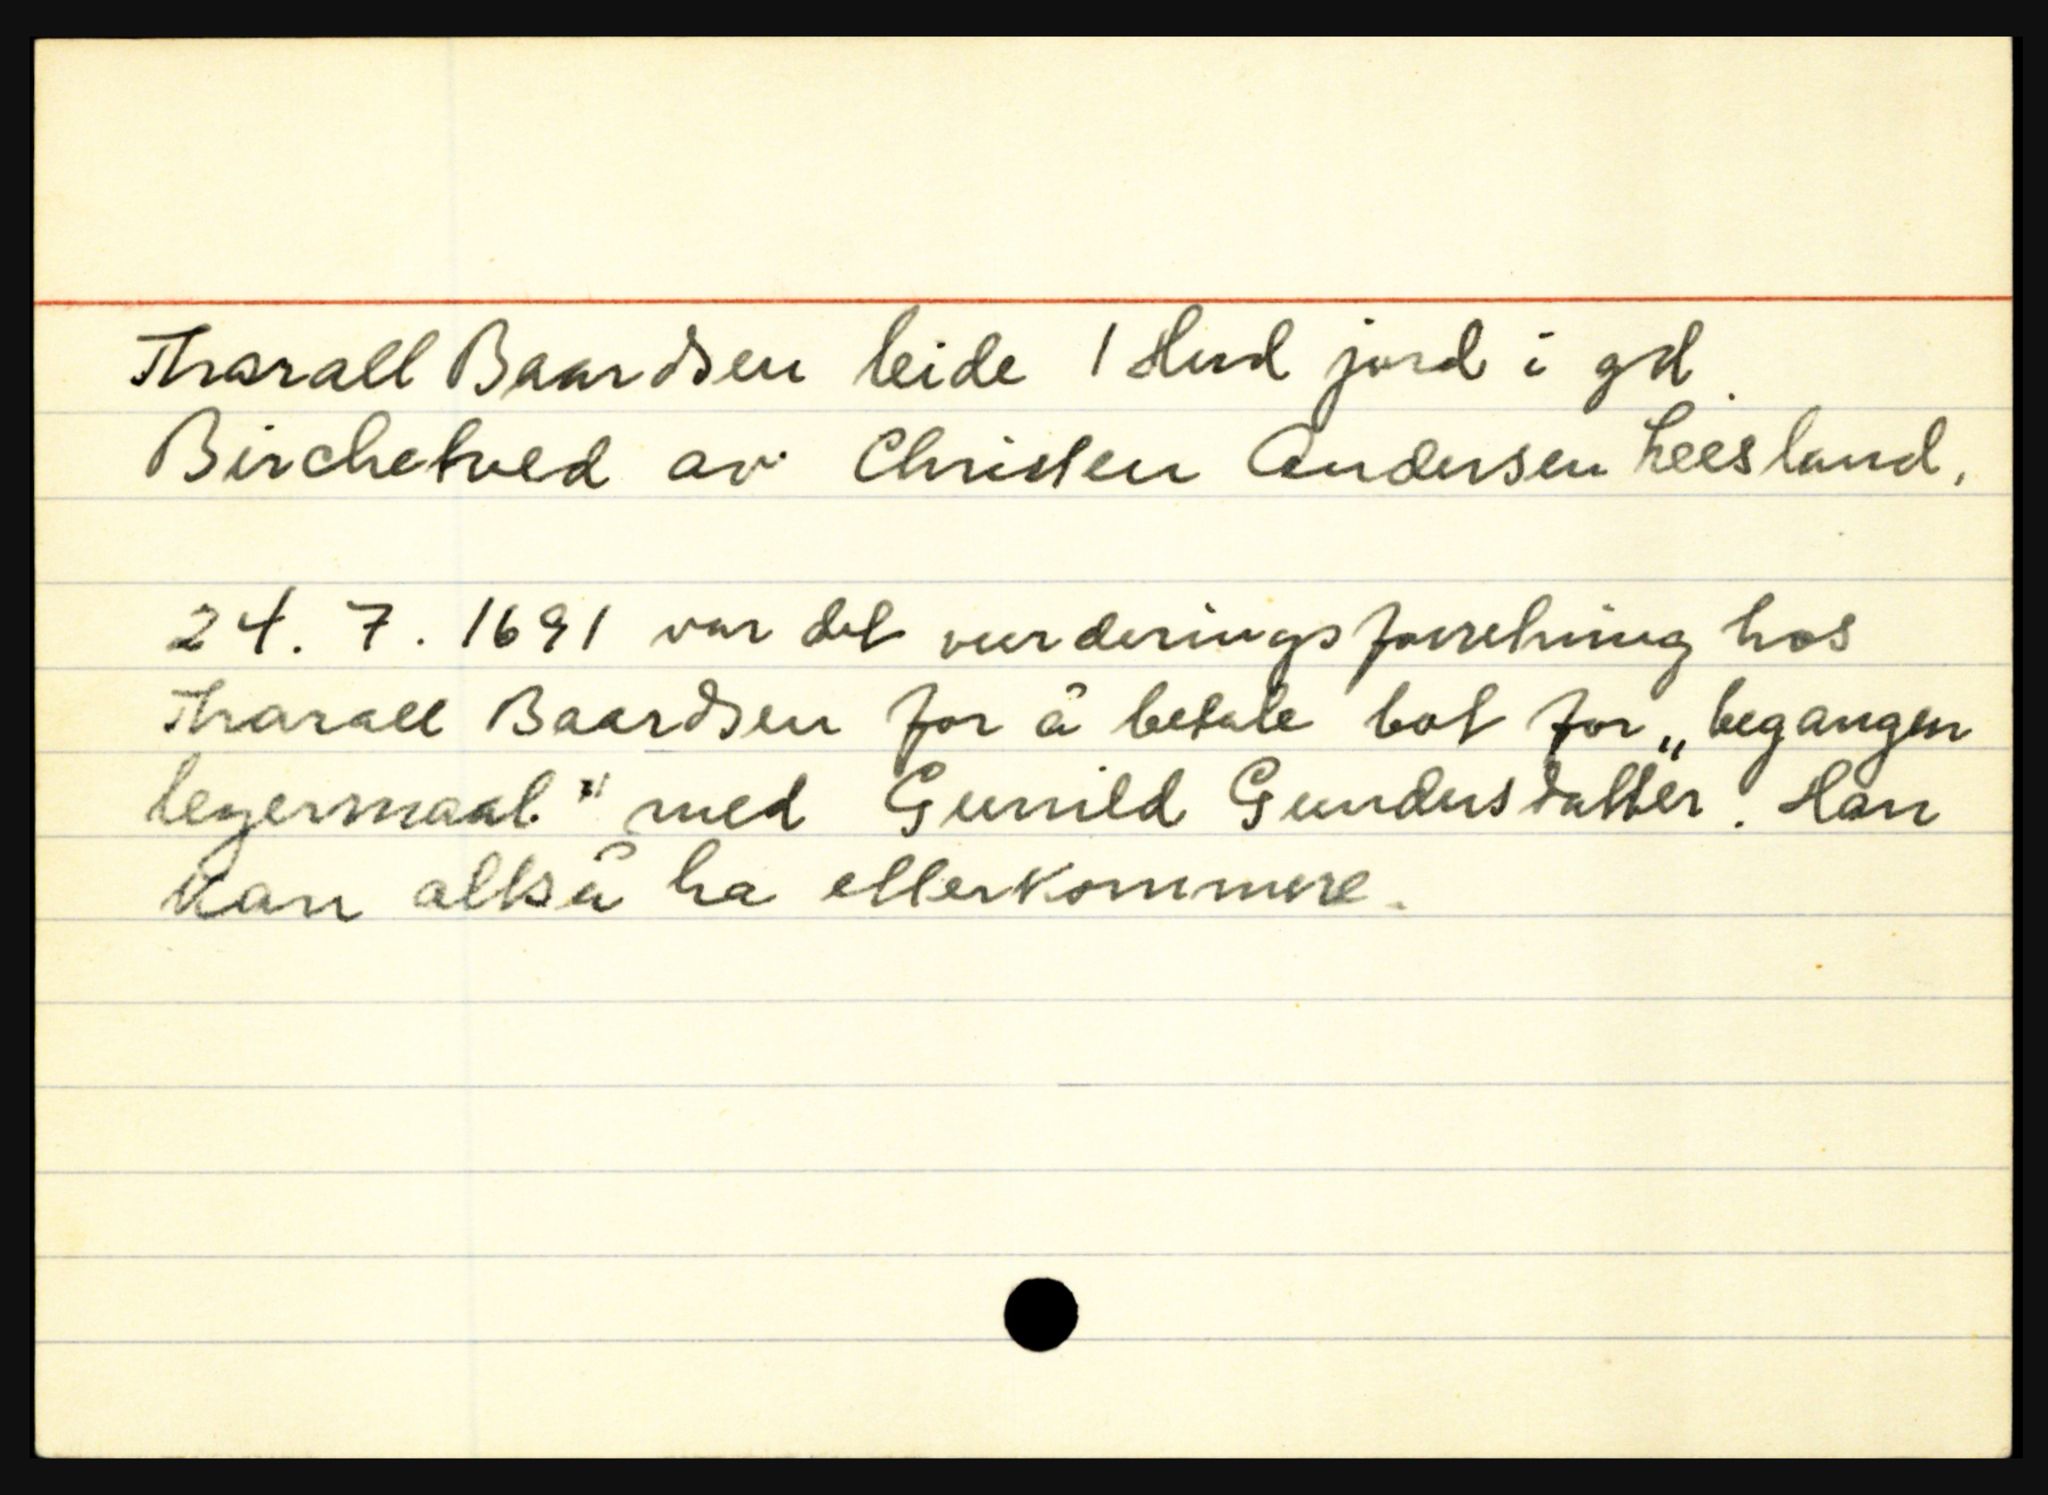 Tharall Baardsen leide 1 Hud jord i gd.
Birchetved av Christen Andersen Leesland.
24. 7. 1691 var det vurderingsforretning hos
Tharall Baardsen for å betale bot for „begangen
leyermaal" med Gunild Gundersdatter. Han
kan altså ha etterkommere.